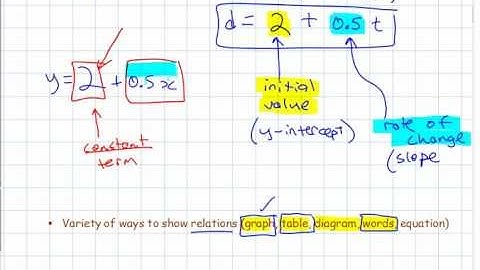 d = 2 + 0.5 t
y = 2 + 0.5 x
initial
value
(y-intercept)
rate of
change
(slope
constant
term
• Variety of ways to show relations (graph, table, diagram, words, equation)